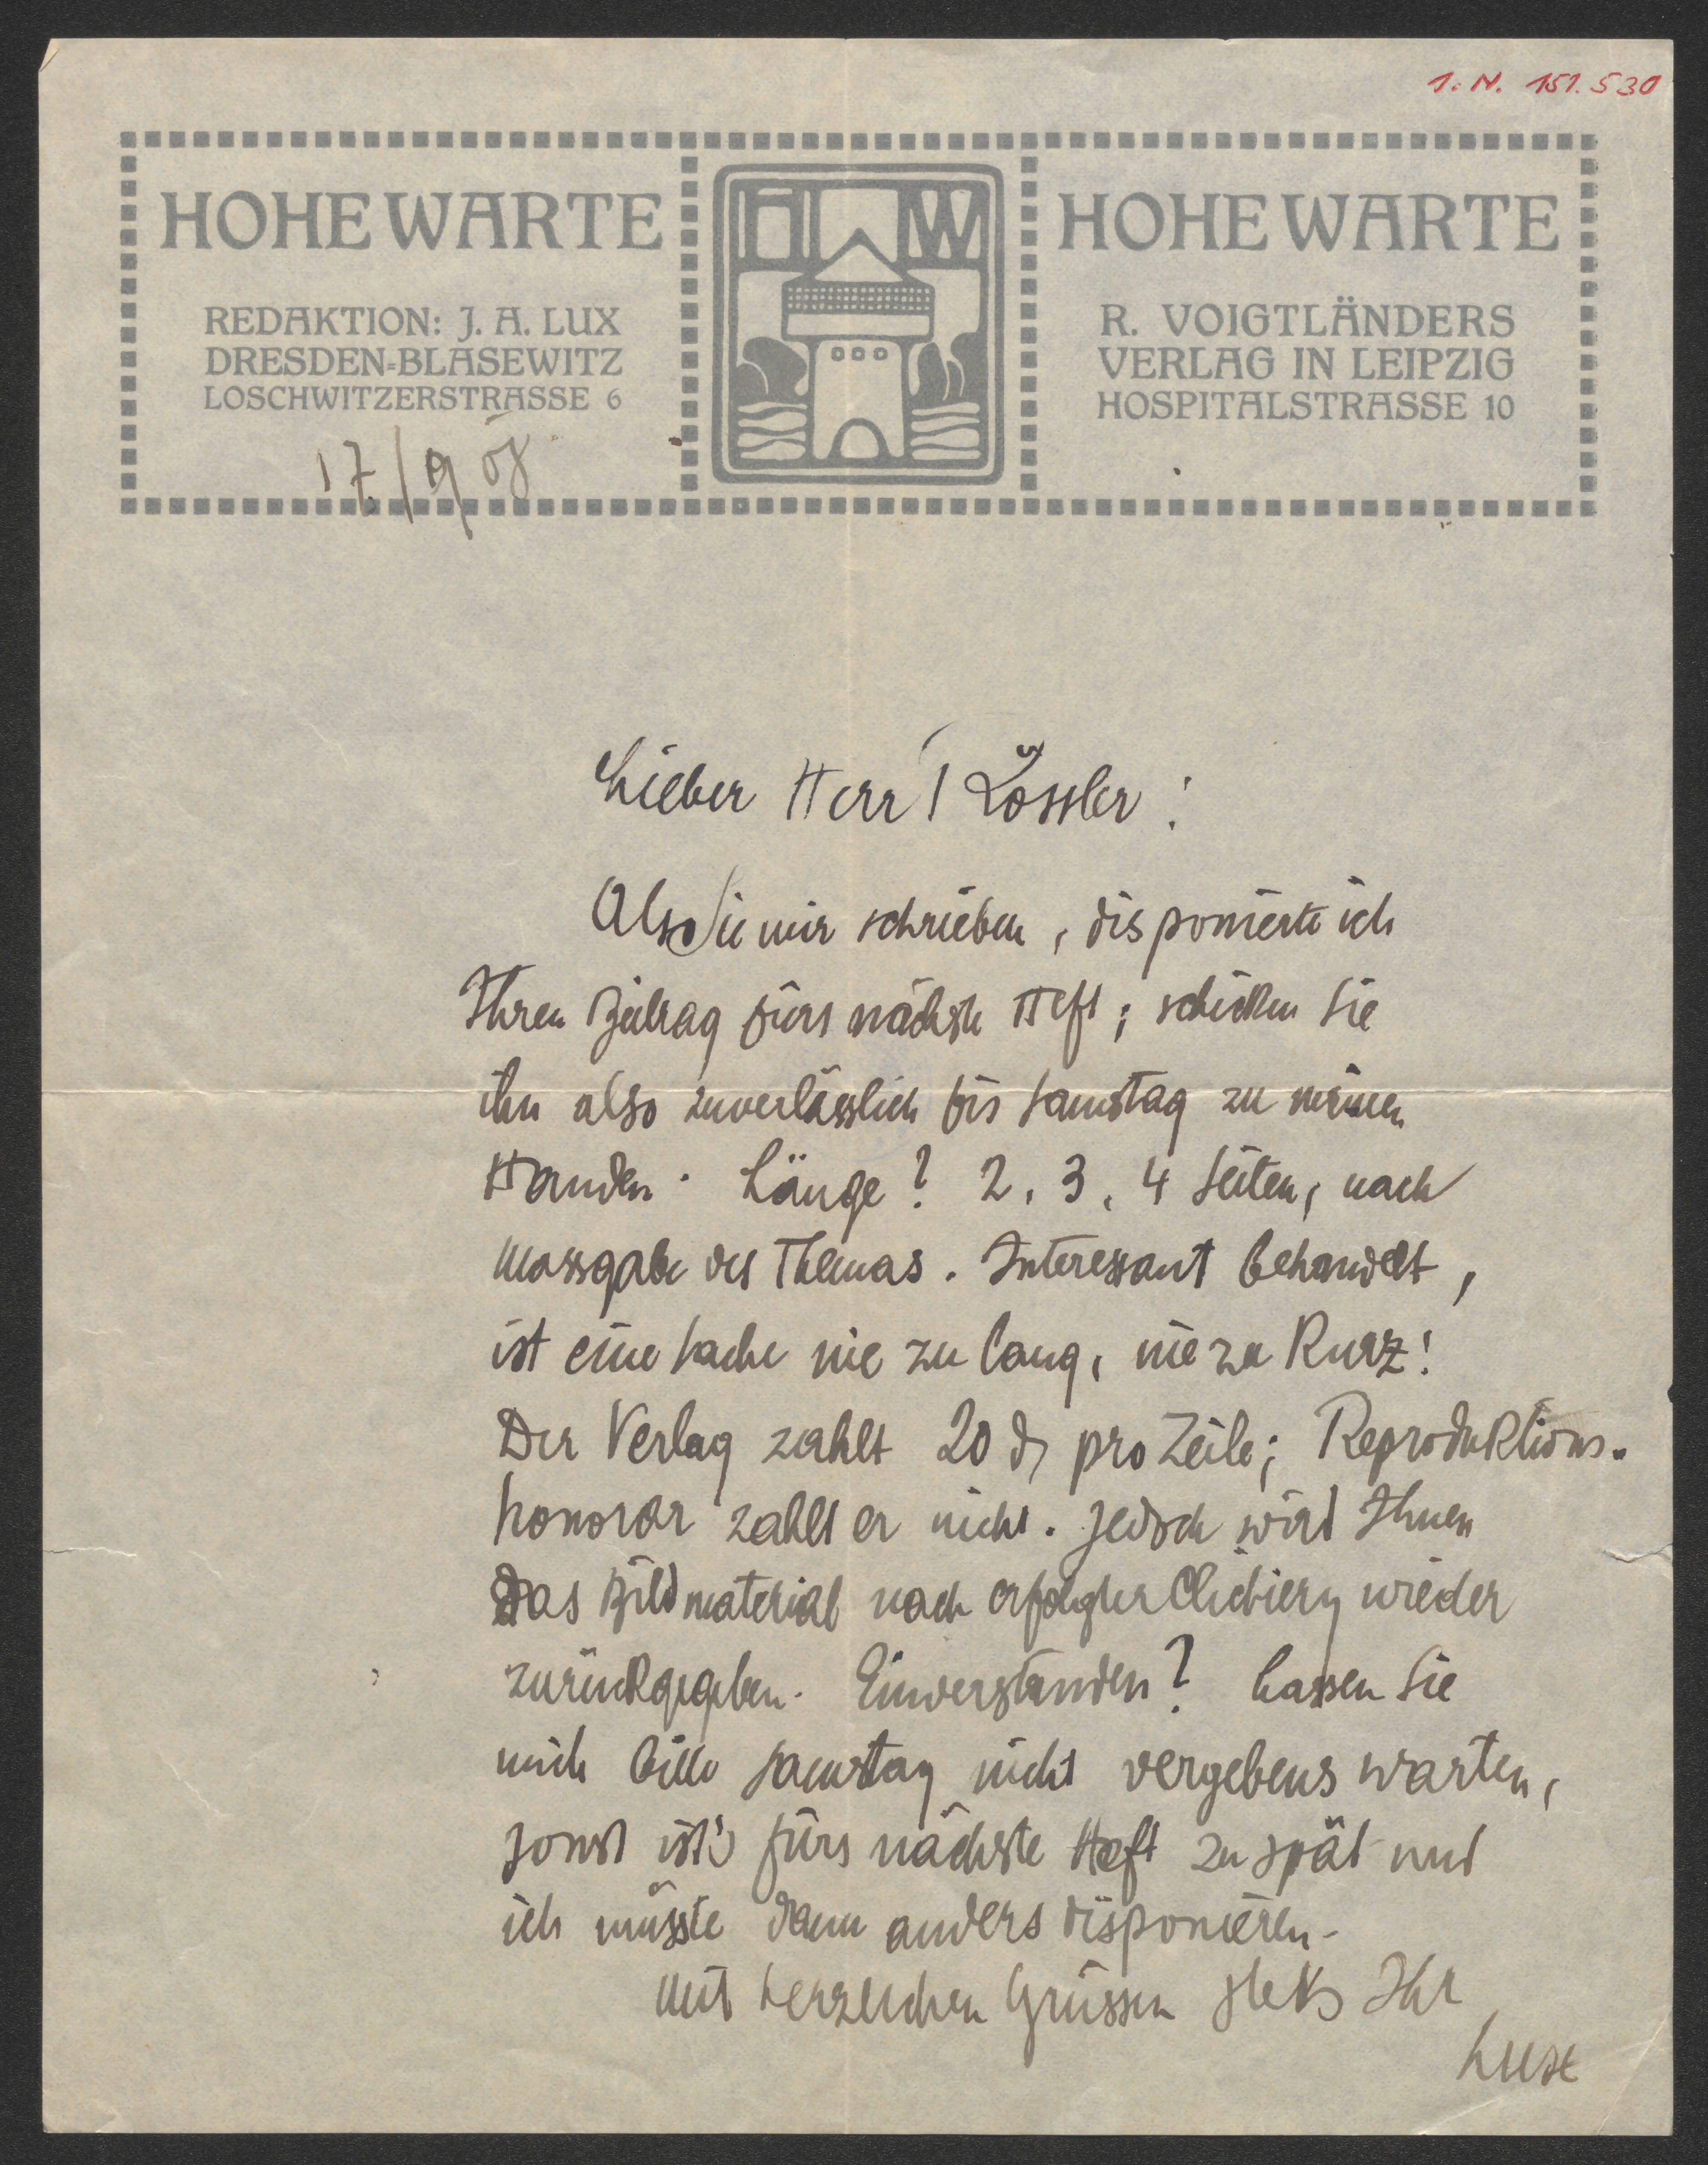 I. N. 151.530
HOHE WARTE
REDAKTION: J. A. LUX
DRESDEN-BLASEWITZ
LOSCHWITZERSTRASSE 6
17/9 08
HW
HOHE WARTE
R. VOIGTLÄNDERS
VERLAG IN LEIPZIG
HOSPITALSTRASSE 10
Lieber Herr Rössler!
Als Sie mir schrieben, disponierte ich
Ihren Beitrag fürs nächste Heft; schicken Sie
ihn also zuverlässlich bis Samstag zu meinen
Handen. Länge? 2, 3, 4 Seiten, nach
Massgabe des Themas. Interessant behandelt,
ist eine Sache nie zu lang, nie zu kurz!
Der Verlag zahlt 20 ₰ pro Zeile; Reproduktions-
honorar zahlt er nicht. Jedoch wird Ihnen
das Bildmaterial nach erfolgter Clichierg wieder
zurückgegeben. Einverstanden? Lassen Sie
mich bitte Samstag nicht vergebens warten,
sonst ist's fürs nächste Heft zu spät und
ich müsste dann anders disponieren.
Mit herzlichen Grüssen stets Ihr
Lux